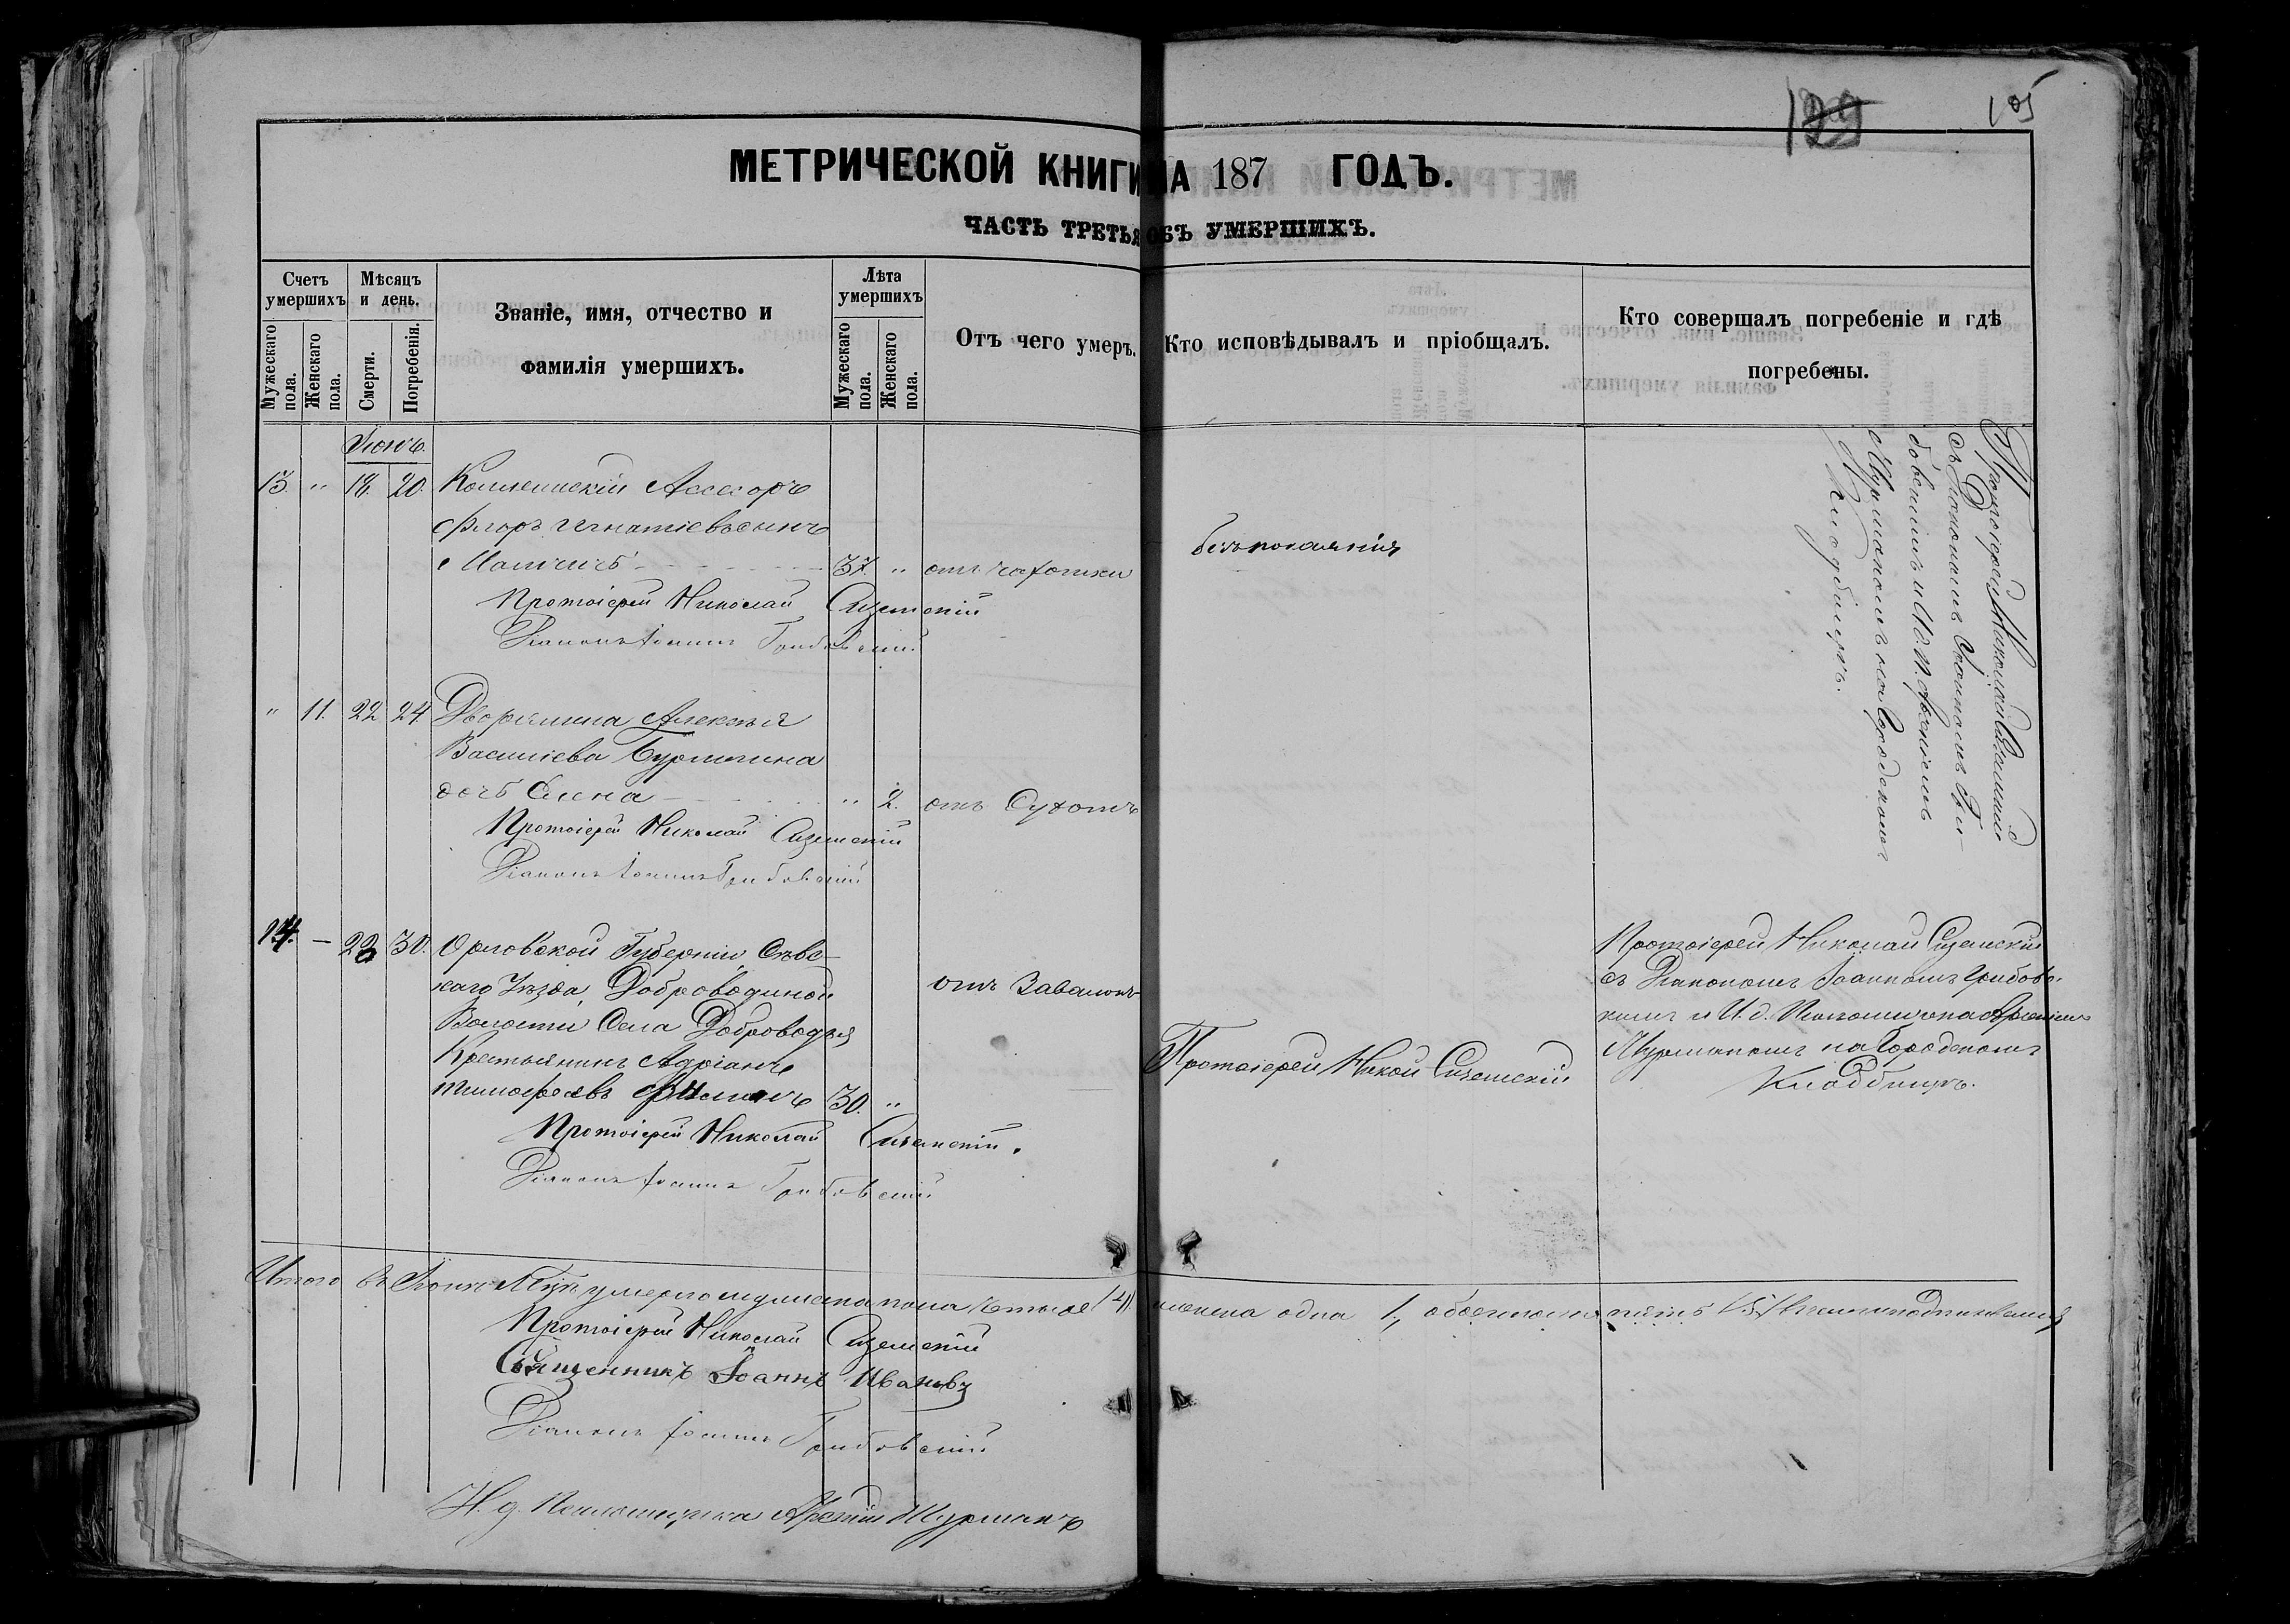 105
МЕТРИЧЕСКОЙ КНИГИ НА 187 ГОДЪ.
ЧАСТЬ ТРЕТЬЯ ОБЪ УМЕРШИХЪ.
Счетъ умершихъ
Мужескаго пола.
Женскаго пола.
Мѣсяцъ и день.
Смерти.
Погребенія.
Званіе, имя, отчество и
фамилія умершихъ.
Лѣта умершихъ
Мужескаго пола.
Женскаго пола.
Отъ чего умеръ.
Кто исповѣдывалъ и пріобщалъ.
Кто совершалъ погребеніе и гдѣ
погребены.
Іюнь.
13. " 18. 20. Коллежскій Ассесоръ
Флоръ Игнатіевъ сынъ
37 " отъ чахотки
безъ покаянія
Протоіерей Николай Сиземскій
Діаконъ Іоаннъ Грибовскій
Протоіерей Николай Сиземскій
съ Діакономъ Іоанномъ Гри-
бовскимъ и И. д. П. Арсеніемъ
Шурманомъ на Городскомъ
Кладбищѣ.
" 11. 22 24 Дворянина Алексѣя
Василіева
дочь Елена " 2. отъ Сухотъ
Протоіерей Николай Сиземскій
Діаконъ Іоаннъ Грибовскій
14. — 28 30. Орловской Губерніи Сѣвс-
каго Уѣзда Доброводиной
Волости Села Доброводья
Крестьянинъ Адріанъ
Тимофеевъ 30. "
отъ
Протоіерей Никол Сиземскій
Протоіерей Николай Сиземскій
съ Діакономъ Іоанномъ Грибовс-
кимъ и И. д. Псаломщика Арсеніемъ
Шурманомъ на Городскомъ
Кладбищѣ.
Протоіерей Николай Сиземскій.
Діаконъ Іоаннъ Грибовскій
Итого въ Іюнѣ Мцѣ умерло мужеска пола четыре (4) женска одна 1, обоего пять (5)
Протоіерей Николай Сиземскій
Священникъ Іоаннъ Ивановъ
Діаконъ Іоаннъ Грибовскій
И. д. Псаломщика Арсеній Шурманъ